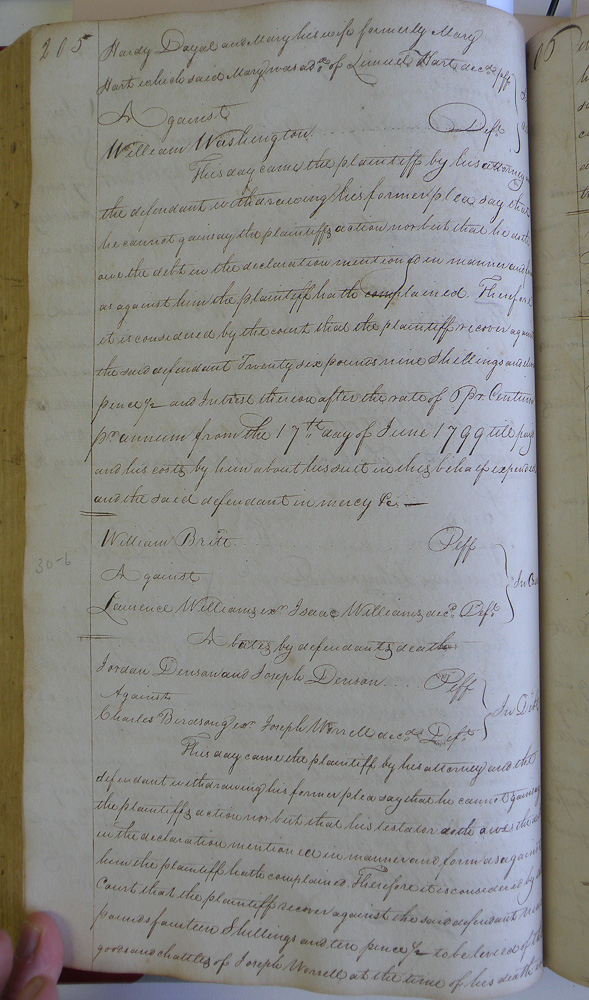 205
Hardy Doyal and Mary his wife formerly Mary
Hart which said Mary was adx. of Lemuel Hart decd. plff
Against
William Washington Deft.
This day came the plaintiff by his attorney
the defendant withdrawing his former plea say that
he cannot gainsay the plaintiffs action nor but that he doth
owe the debt in the declaration mentioned in manner and
as against him the plaintiff hath complained. Therefore
it is considered by the court that the plaintiff recover against
the said defendant Twenty six pounds nine Shillings and
pence ½ and Intrest thereon after the rate of 6 pr. Centum
pr annum from the 17th. day of June 1799 till paid
and his costs by him about his suit in this behalf expended
and the said defendant in mercy &c. —
30-6
William Britt Plff
Against In Ca
Laurence Williams exr Isaac Williams decd. Deft.
Abates by defendants death
Jordan Denson and Joseph Denson Plff
Against In Debt
Charles Birdsong exr Joseph Worrell decd. Deft.
This day came the plaintiff by his attorney and the
defendant withdrawing his former plea say that he cannot gainsay
the plaintiffs action nor but that his testator doth owes the
in the declaration mentioned in manner and form as against
him the plaintiff hath complained. Therefore it is considered by the
Court that the plaintiff recover against the said defendant
pounds fourteen Shillings and ten pence ½ to be levied of the
goods and chattles of Joseph Worrell at the time of his death